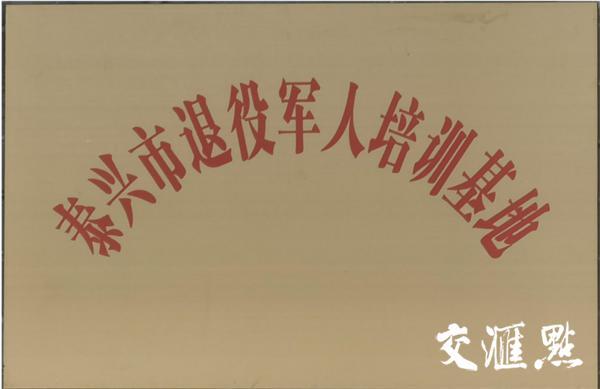 泰兴市退役军人培训基地
交滙點